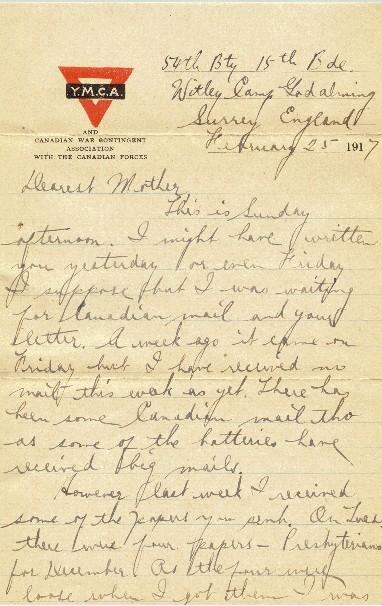 54th Bty 15th Bde.
Witley Camp Godalming
Surrey England
February 25 1917
Y.M.C.A.
AND
CANADIAN WAR CONTINGENT
ASSOCIATION
WITH THE CANADIAN FORCES
Dearest Mother
This is Sunday
afternoon. I might have written
you yesterday or even Friday
I suppose but I was waiting
for Canadian mail and your
letter. A week ago it came on
Friday but I have received no
mail this week as yet. There has
been some Canadian mail tho
as some of the batteries have
received big mails.
However last week I received
some of the papers you send. On Tues
there were four papers - Presbyterians
for December. As the four were
loose when I got them I was